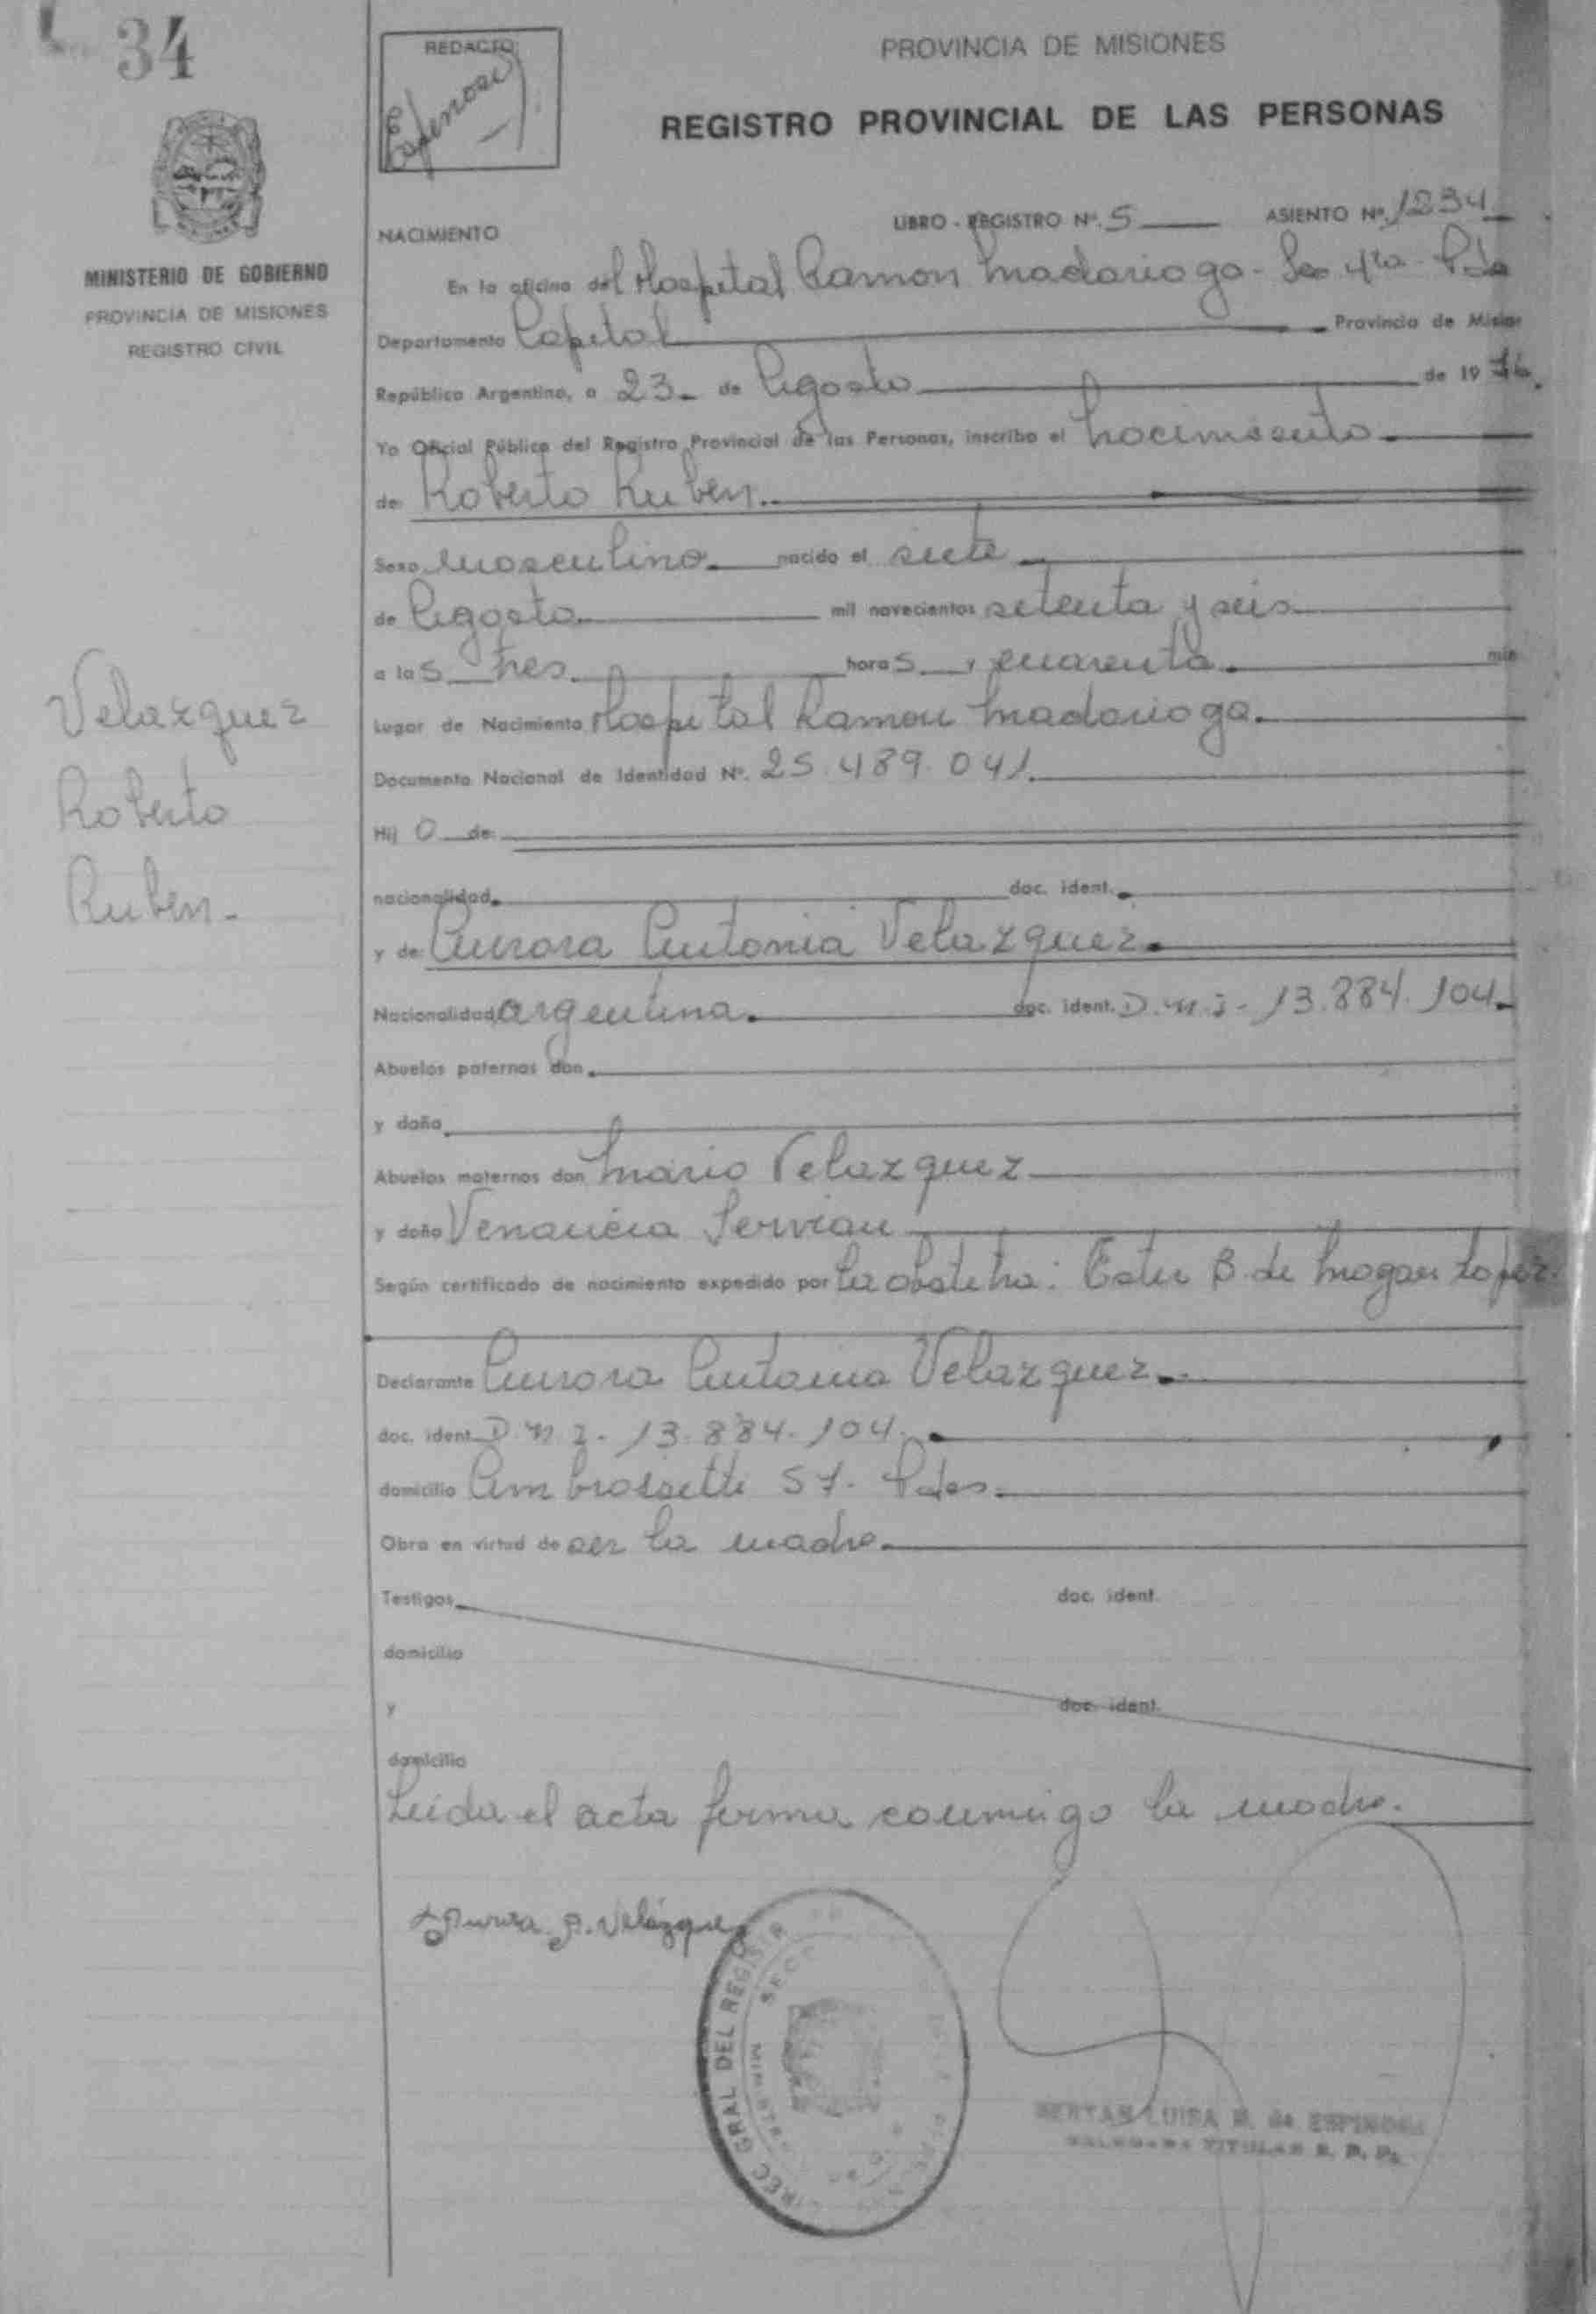 34
REDACTO
Espinosa
PROVINCIA DE MISIONES
REGISTRO PROVINCIAL DE LAS PERSONAS
MINISTERIO DE GOBIERNO
PROVINCIA DE MISIONES
REGISTRO CIVIL
NACIMIENTO LIBRO - REGISTRO Nº. 5 ASIENTO Nº. 1234
En la oficina del Hospital Ramon Madariaga - Sec 4ta - Pdas
Departamento Capital Provincia de Misiones
República Argentina, a 23 de Agosto de 19 76.
Yo Oficial Público del Registro Provincial de las Personas, inscribo el nacimiento
de: Roberto Ruben.
Sexo masculino nacido el siete
de Agosto mil novecientos setenta y seis
a las tres horas y cuarenta min
Lugar de Nacimiento Hospital Ramon Madariaga.
Documento Nacional de Identidad Nº. 25.489.041.
Hij o de:
nacionalidad. doc. ident.
y de: Aurora Antonia Velazquez.
Nacionalidad argentina. doc. ident. D.n.i- 13.884.104.
Abuelos paternos don
y doña
Abuelos maternos don Mario Velazquez
y doña Venancia Servian
Según certificado de nacimiento expedido por La obstetra: Ester B. de Lopez.
Declarante Aurora Antonia Velazquez.
doc. ident. D.n.i- 13.884.104.
domicilio Ambrosetti 57. Pdas.
Obra en virtud de ser la madre.
Testigos doc. ident.
domicilio
y doc. ident.
domicilio
Leída el acta firma conmigo la madre.
Velazquez
Roberto
Ruben-
Aurora A. Velázquez
DIREC GRAL DEL REGIST
SECC
MINISTER
LUISA M. de ESPINOSA
TITULAR R. P. P.